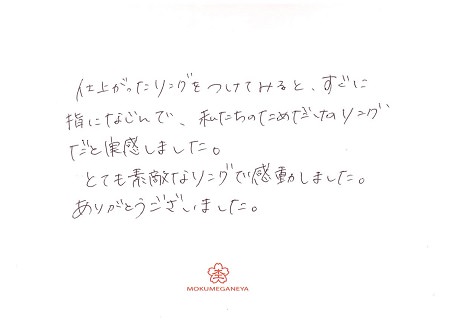 仕上がったリングをつけてみると、すぐに
指になじんで、私たちのためだけのリング
だと実感しました。
とても素敵なリングで感動しました。
ありがとうございました。
MOKUMEGANEYA